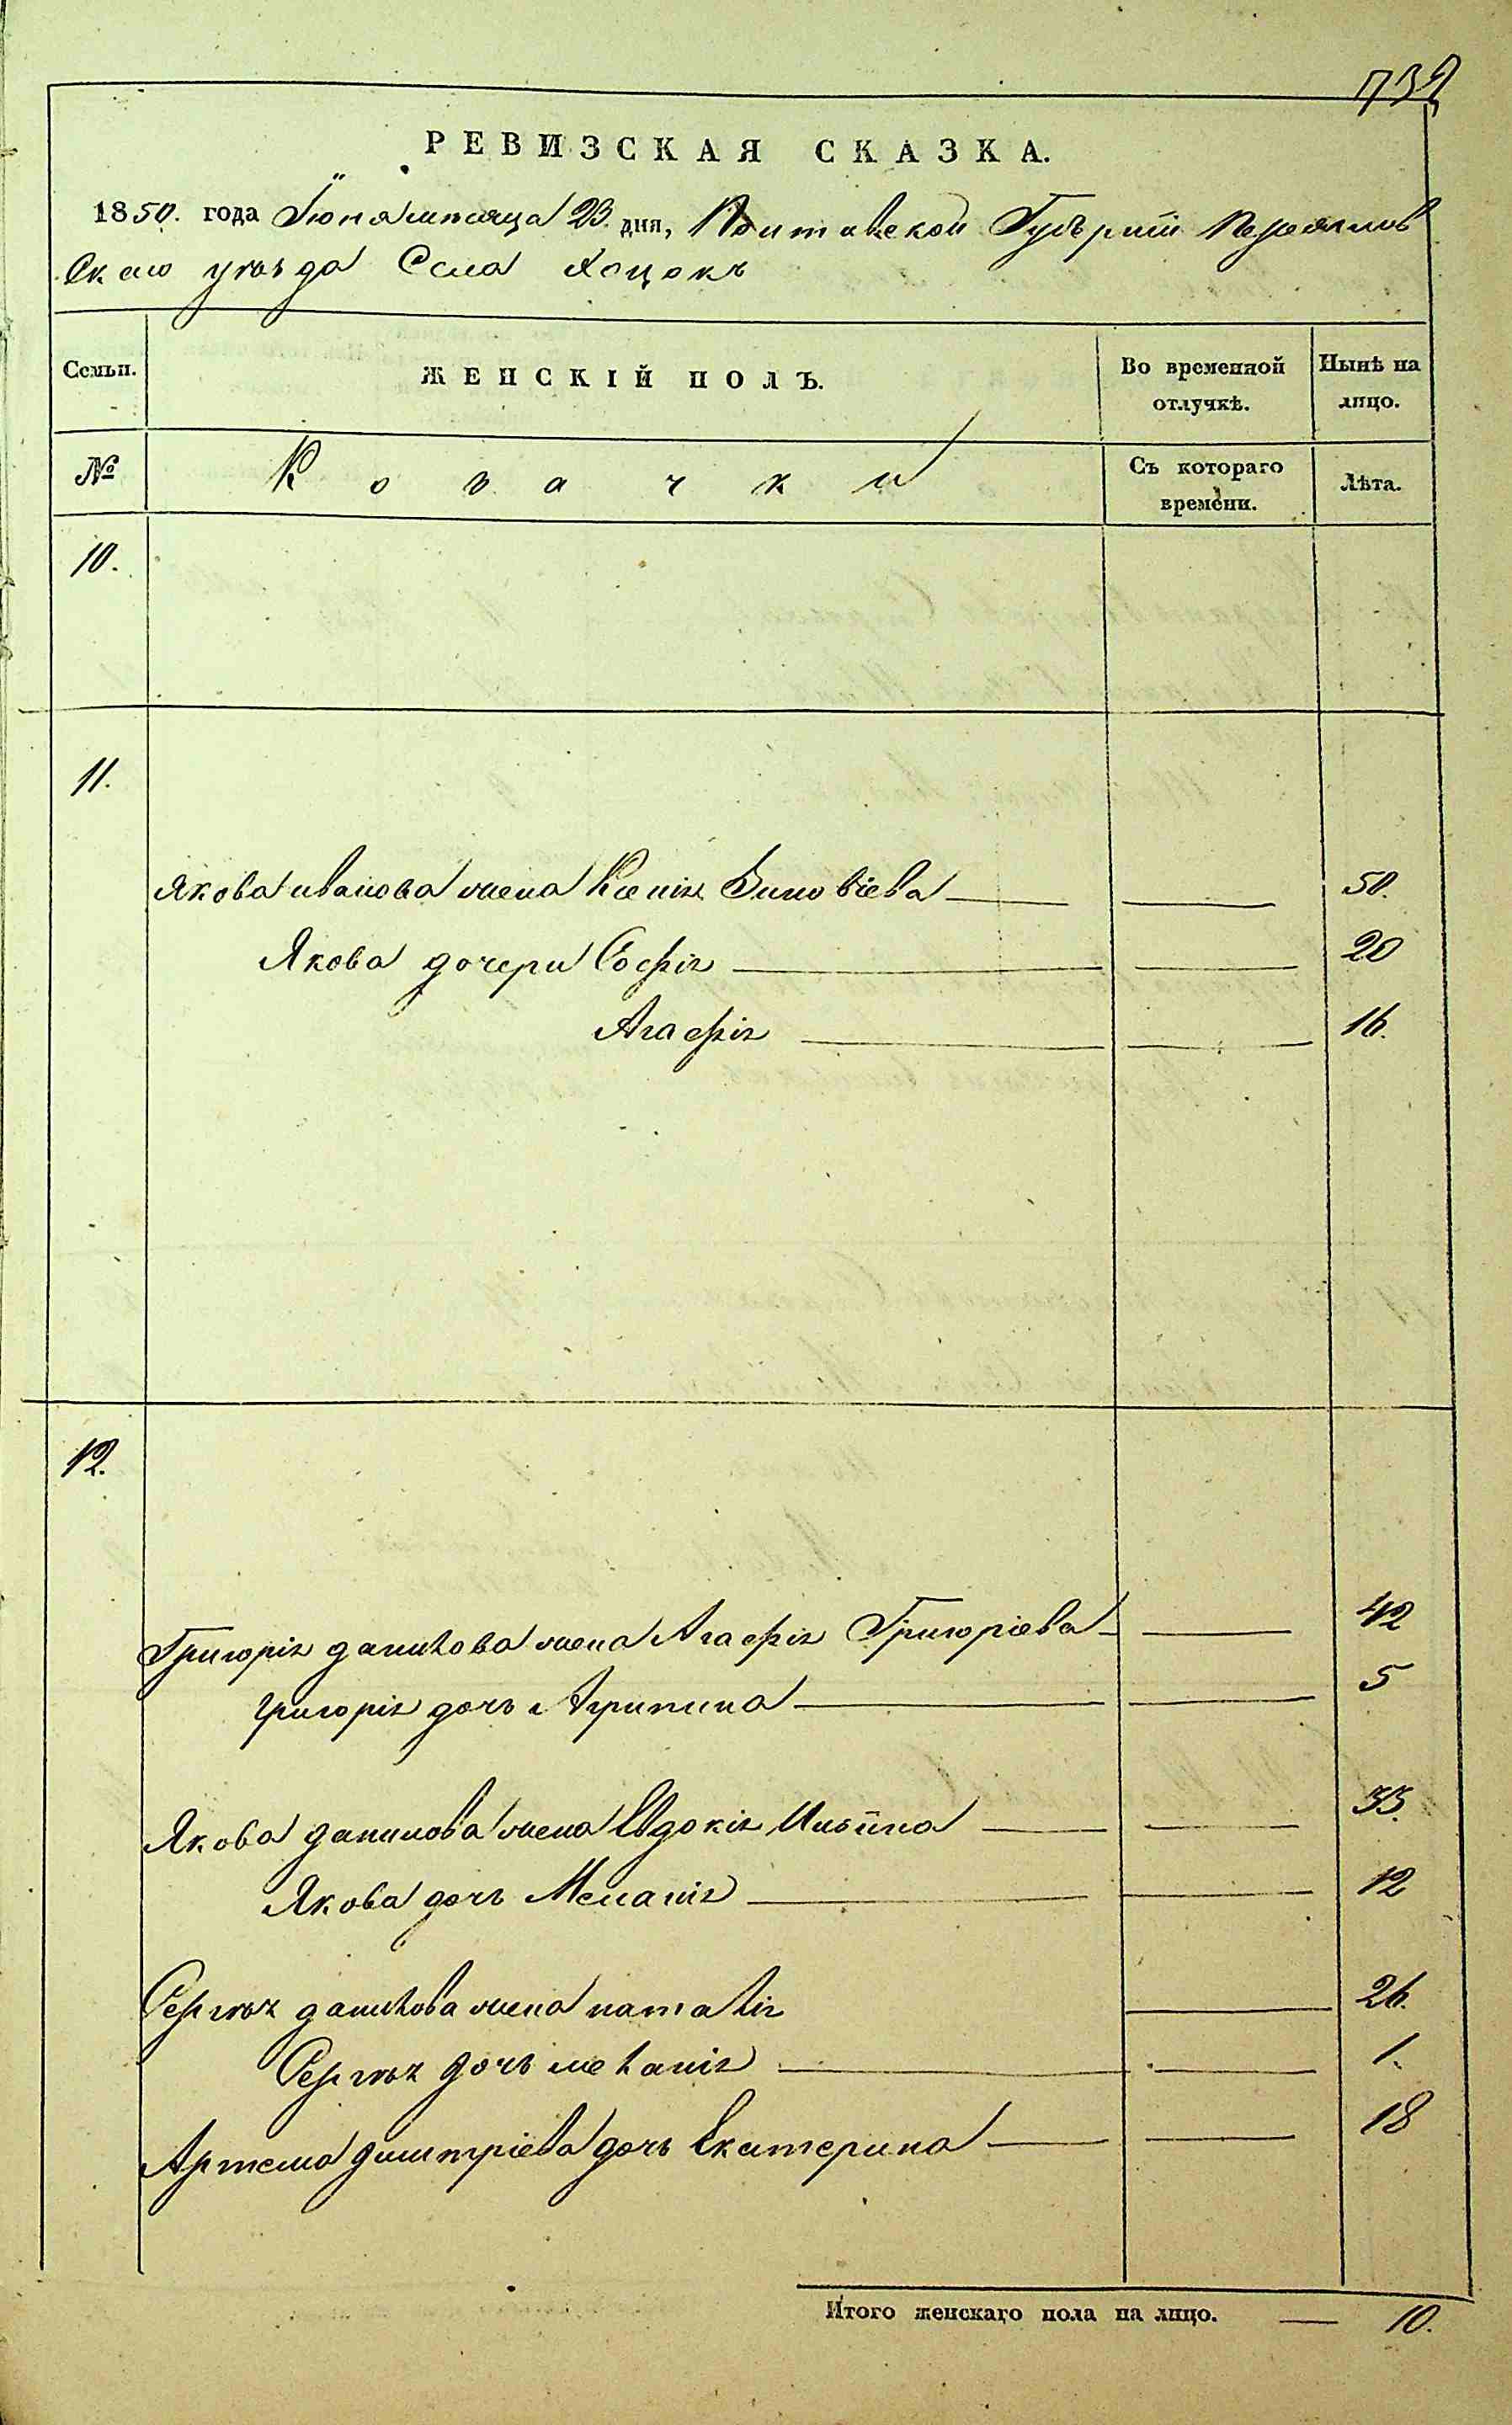 732
РЕВИЗСКАЯ СКАЗКА.
1850. года Іюня мѣсяца 23. дня, Полтавской Губерніи Переяслов
Скаго уѣзда Села Хоцокъ
Семьи. ЖЕНСКІЙ ПОЛЪ. Во временной отлучкѣ. Нынѣ на лицо.
№ Козачки Съ котораго времени. Лѣта.
10.
11.
Якова иванова жена Ксенія Зиновіева 50.
Якова дочери Софія 20
Агафія 16.
12.
Григорія данилова жена Агафія Григоріева 42
григорія дочь Агрипина 5
Якова данилова жена Евдокія Ильіина 33.
Якова дочь Меланія 12
Сергѣя данилова жена наталія 26.
Сергѣя дочь меланія 1.
Артема димитріева дочь Екатерина 18
Итого женскаго пола на лицо. 10.